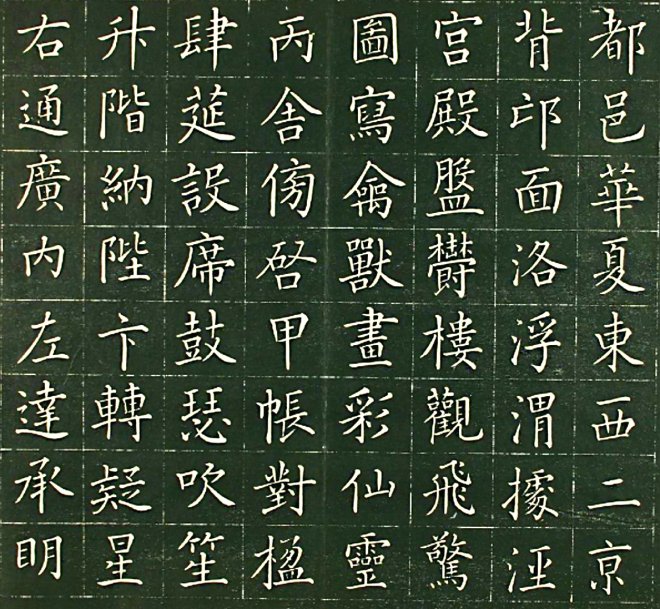 都邑華夏東西二京
背邙面洛浮渭據涇
宮殿盤鬱樓觀飛驚
圖寫禽獸畫彩仙靈
丙舍傍啓甲帳對楹
肆筵設席鼓瑟吹笙
升階納陛弁轉疑星
右通廣內左達承明